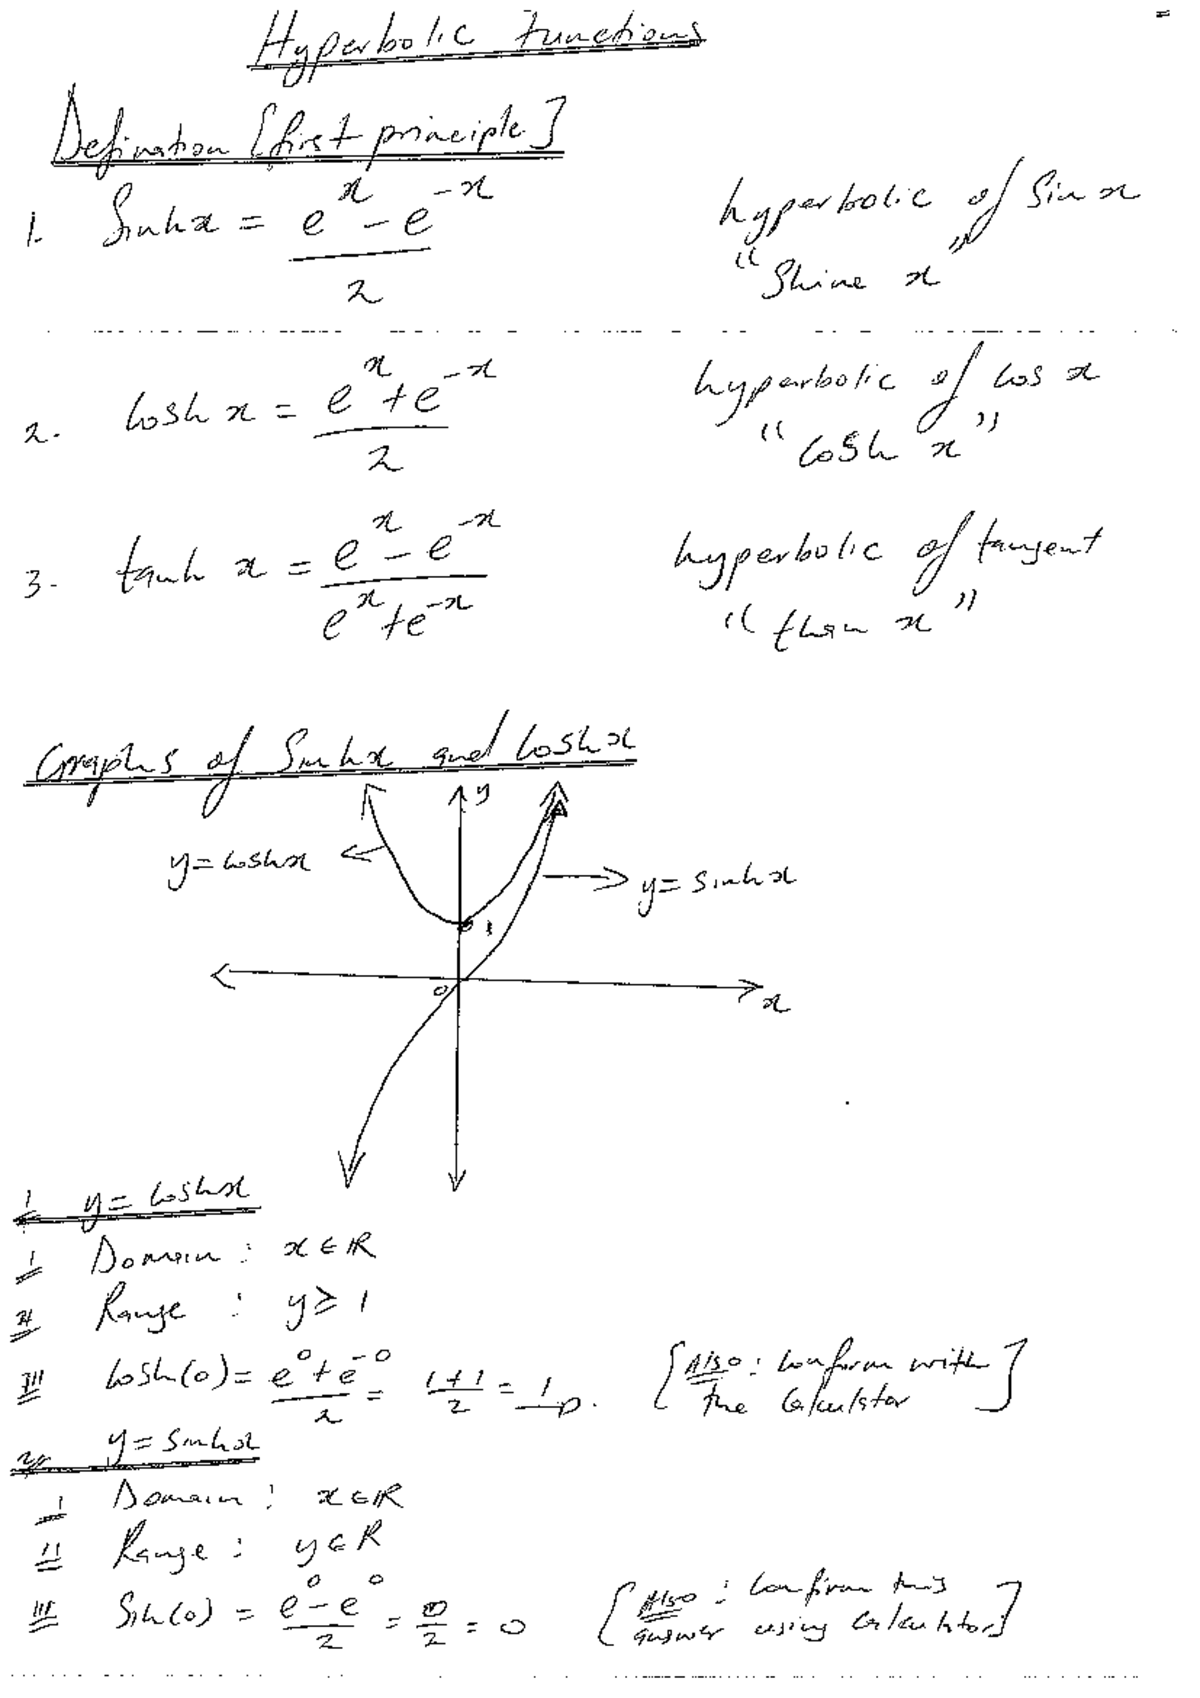 Hyperbolic Functions
Defination [first principle]
1. Sinhx = e^x - e^-x / 2
hyperbolic of Sin x
"Shine x"
2. Cosh x = e^x + e^-x / 2
hyperbolic of Cos x
"Cosh x"
3. tanh x = e^x - e^-x / e^x + e^-x
hyperbolic of tangent
"than x"
Graphs of Sinhx and Coshx
y
y = Coshx
y = Sinhx
1
0
x
1 y = Coshx
I Domain : x ∈ R
II Range : y ≥ 1
III Cosh(0) = e^0 + e^-0 / 2 = 1+1 / 2 = 1 [Also : Confirm with
the Calculator]
2. y = Sinhx
I Domain : x ∈ R
II Range : y ∈ R
III Sih(0) = e^0 - e^0 / 2 = 0/2 = 0 [Also : Confirm this
answer using Calculator]